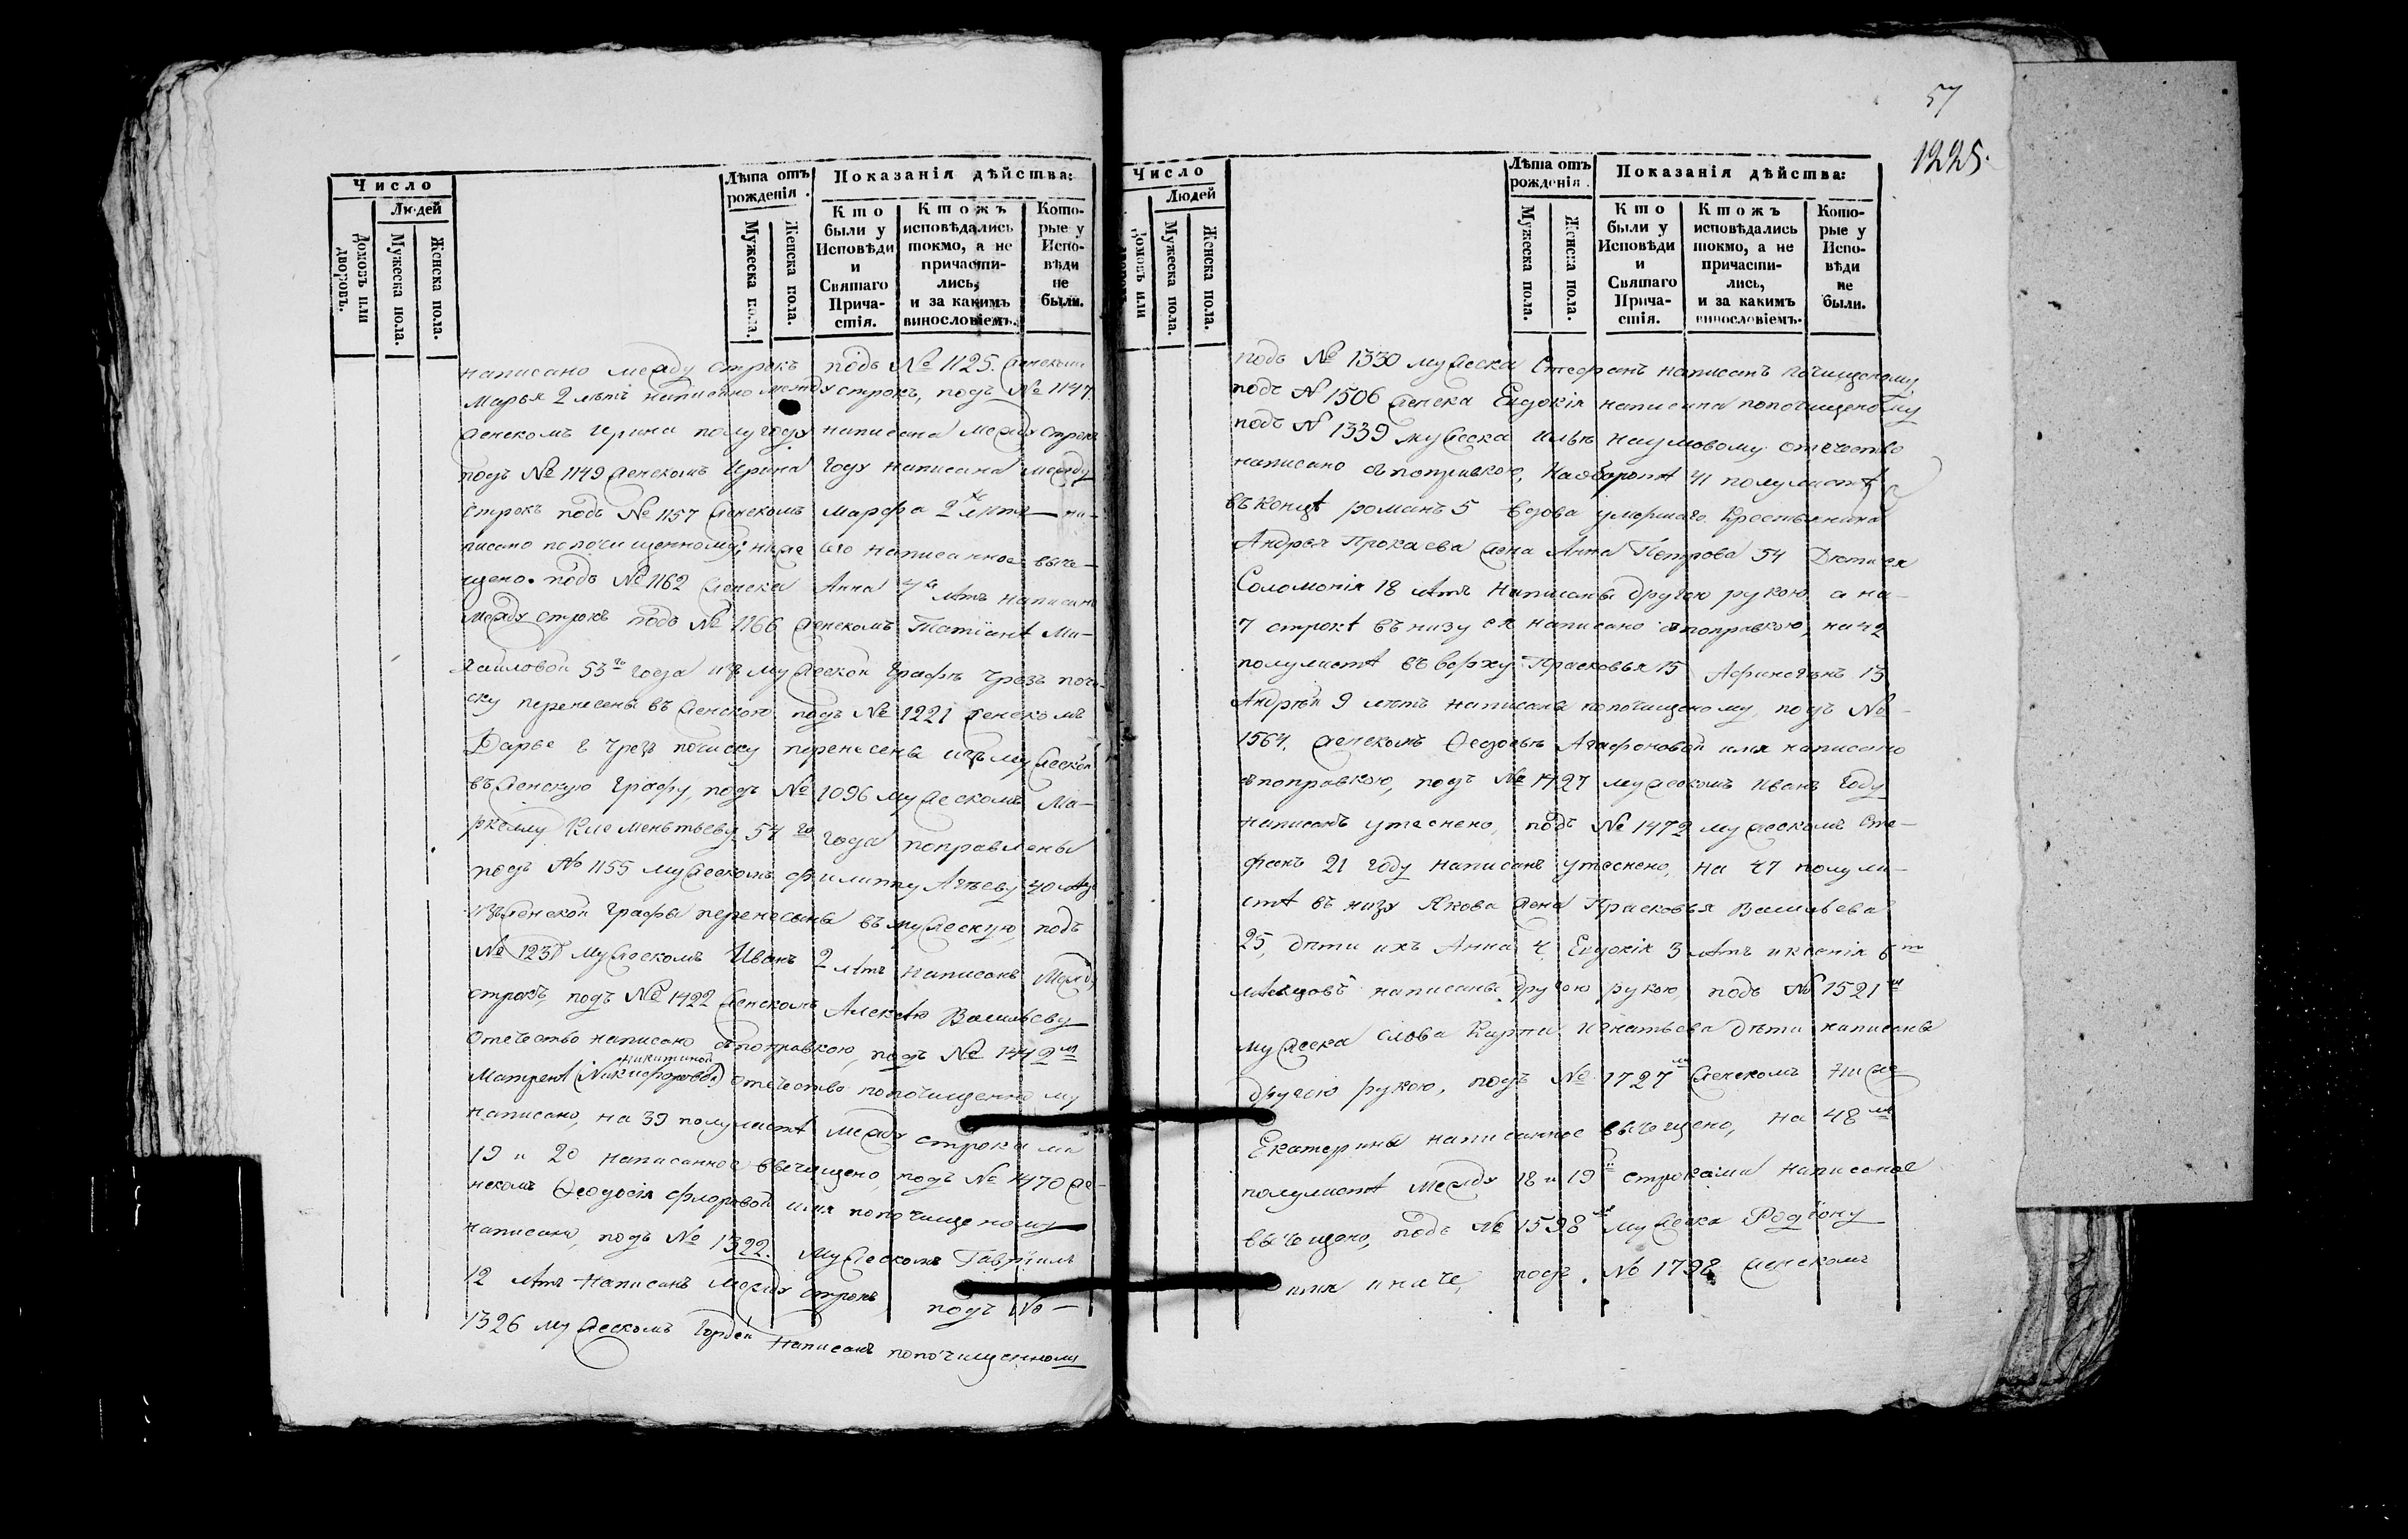 Число
Людей
Домовъ или дворовъ.
Мужеска пола.
Женска пола.
Лѣта отъ рожденія.
Мужеска пола.
Женска пола.
Показанія дѣйства:
Кто были у Исповѣди и Святаго Прича-стія.
Ктожъ исповѣдались токмо, а не причасти-лись, и за какимъ винословіемъ.
Кото-рые у Испо-вѣди не были.
написано между строкъ подъ № 1125. женскимъ
Марья 2 лѣтъ написано между строкъ, подъ № 1147
женскомъ Ирина полугоду написана между строкъ
подъ № 1149 женскомъ Ирина году написана между
строкъ подъ № 1157 женскомъ Марфа 2хъ лѣтъ на-
писано по почищенному; ниже его написанное вычи-
щено. подъ № 1162 женска Анна лѣтъ написана
между строкъ подъ № 1166 женскомъ Татіанѣ Ми-
хайловой 53го года изъ мужеской графы чрезъ почи-
ску перенесены въ женскою подъ № 1221 женскомъ
Дарье чрезъ почиску перенесены изъ мужеской
въ женскую графу, подъ № 1096 мужескомъ Ма-
ркеллу Клементьеву 54го года поправлены
подъ № 1155 мужескомъ Филиппу Агѣеву 40 лѣтъ
изъ женской графы перенесены въ мужескую, подъ
№ 1231 мужескомъ Иванъ 2 лѣтъ написанъ между
строкъ, подъ № 1422 женскомъ Алексѣю Васильеву
отечество написано съ поправкою, подъ № 1442м
Никитиной
Матренѣ (Никифоровой) отечество по почищенному
написано, на 39 полулистѣ между строками
19 и 20 написанное вычищено, подъ № 1470 же-
нскомъ Ѳеодосія Флоровой имя по почищеному
написано, подъ № 1322. мужескомъ Гавріилъ
12 лѣтъ написанъ между строкъ подъ №
1326 мужескомъ Гордей написанъ по почищенному
57
1225.
Число
Людей
Домовъ или дворовъ.
Мужеска пола.
Женска пола.
Лѣта отъ рожденія.
Мужеска пола.
Женска пола.
Показанія дѣйства:
Кто были у Исповѣди и Святаго Прича-стія.
Ктожъ исповѣдались токмо, а не причасти-лись, и за какимъ винословіемъ.
Кото-рые у Испо-вѣди не были.
подъ № 1330 мужеска Стефанъ написанъ почищеному
подъ № 1506 женска Евдокія написана по почищеному
подъ № 1339 мужеска Илью Наумовому отечество
написано съ поправкою, на оборотѣ 41 полулиста
въ концѣ романъ 5 вдова умершаго Крестьянина
Андрея Прокаева жена Анна Петрова 54 Дети ея
Соломонія 18 лѣтъ написаны другою рукою а на
7 строкѣ въ низу ея написано съ поправкою, на 42
полулистѣ въ верху Прасковья 15 Афиногенъ 13
Андрей 9 лѣтъ написаны по почищеному, подъ №
1564. женскомъ Ѳедосьѣ Агафоновой имя написано
съ поправкою, подъ № 1427 мужескомъ Иванъ году
написанъ утеснено, подъ № 1472 мужескомъ Сте-
фанъ 21 году написанъ утеснено, на 47 полули-
стѣ въ низу Якова жена Прасковья Васильева
25, дѣти ихъ Анна 4 Евдокія 3 лѣтъ и Ксенія 6ти
мѣсяцовъ написаны другою рукою, подъ № 1521м
мужеска слова Карпа Игнатьева дѣти написаны
другою рукою, подъ № 1727м женскомъ ниже
Екатерины написанное вычищено, на 48м
полулистѣ между 18 и 19й строками написаное
вычищено, подъ № 1598м мужеска Родіону
имя иначе, подъ № 1798 женскомъ